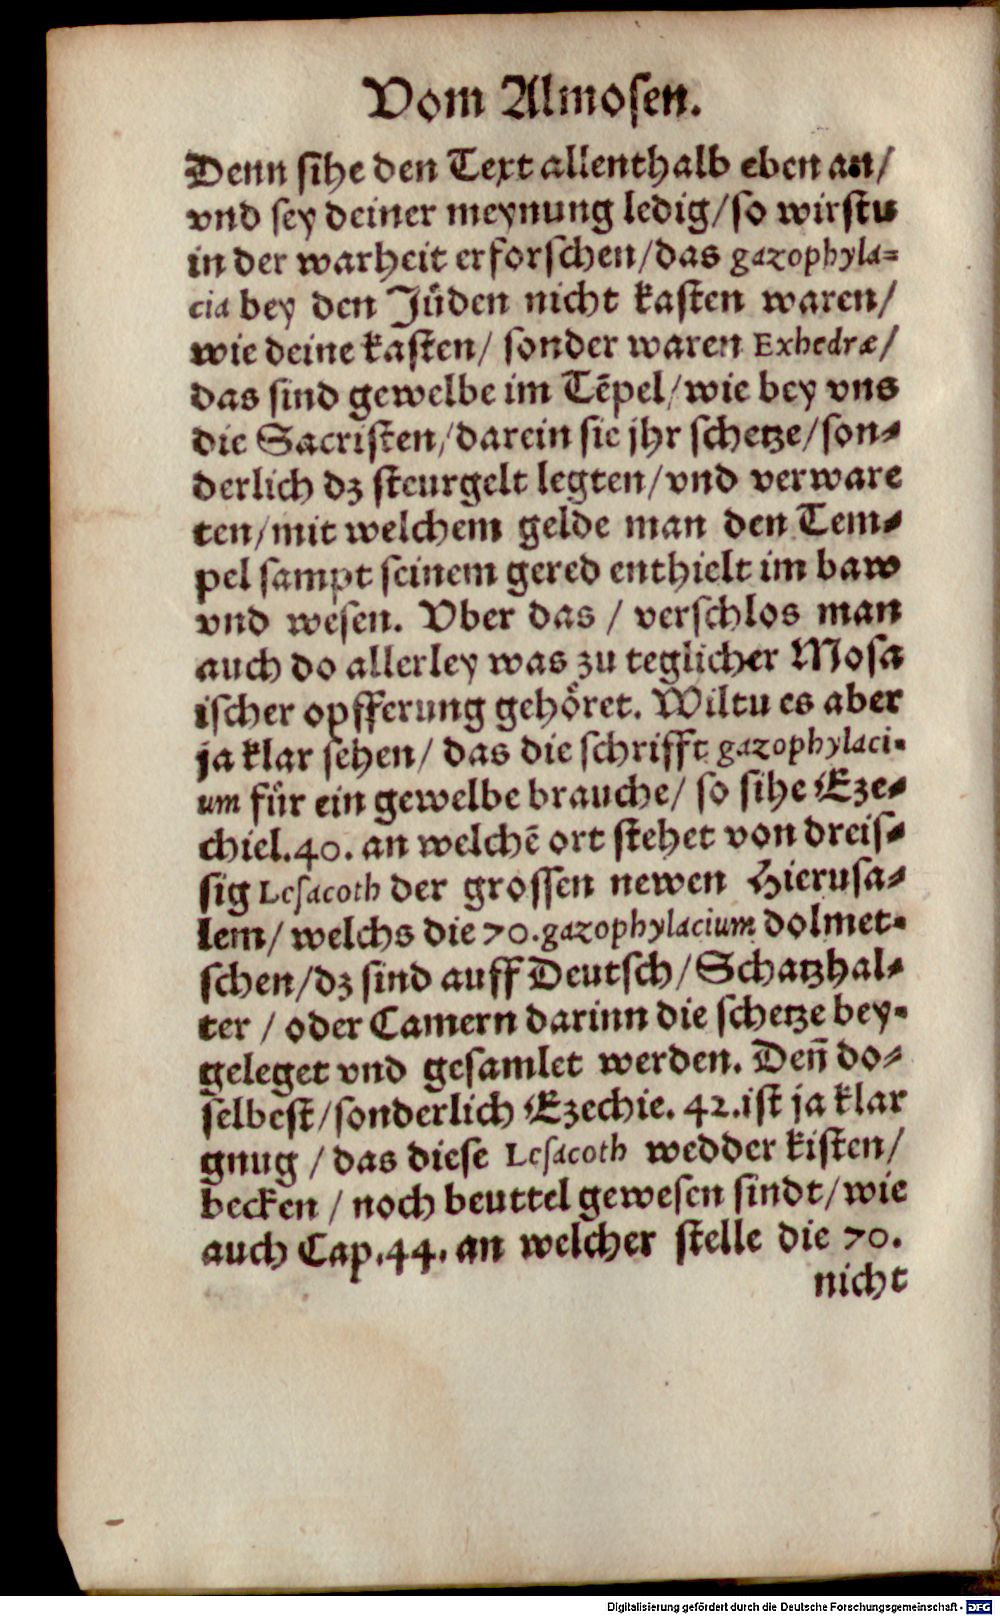 Vom Almosen.
Denn sihe den Text allenthalb eben an/
vnd sey deiner meynung ledig/so wirstu
in der warheit erforschen/das gazophyla=
cia bey den Jüden nicht kasten waren/
wie deine kasten/ sonder waren Exhedræ/
das sind gewelbe im Tēpel/wie bey vns
die Sacristen/darein sie jhr schetze/son=
derlich dz steurgelt legten/vnd verware
ten/mit welchem gelde man den Tem=
pel sampt seinem gered enthielt im baw
vnd wesen. Vber das / verschlos man
auch do allerley was zu teglicher Mosa
ischer opfferung gehöret. Wiltu es aber
ja klar sehen/ das die schrifft gazophylaci=
um für ein gewelbe brauche/ so sihe Eze=
chiel.40. an welchē ort stehet von dreis=
sig Lesacoth der grossen newen Hierusa=
lem/ welchs die 70.gazophylacium dolmet=
schen/dz sind auff Deutsch/Schatzhal=
ter / oder Camern darinn die schetze bey=
geleget vnd gesamlet werden. Den̄ do=
selbest/sonderlich Ezechie. 42.ist ja klar
gnug / das diese Lesacoth wedder kisten/
becken / noch beuttel gewesen sindt/wie
auch Cap.44. an welcher stelle die 70.
nicht
Digitalisierung gefördert durch die Deutsche Forschungsgemeinschaft - DFG